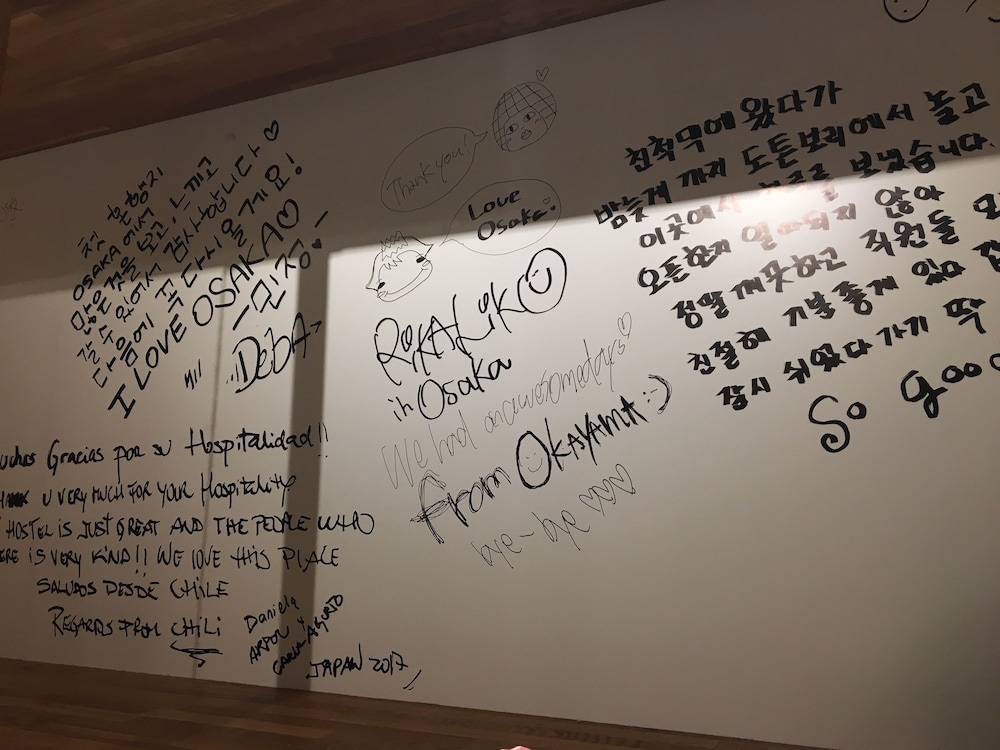 첫
OSAKA 에서
많은것을 보고, 느끼고
갈 수 있어서 감사합니다♡
다음에 꼭 다시 올게요!
I LOVE OSAKA♡
DEBA
Thank you!
Love
Osaka
RiKALiK
in Osaka
We had an awesome days♡
From OKAYAMA :)
bye-bye ♡♡♡
친척댁에 왔다가
밤늦게 까지 도톤보리에서 놀고
이곳에서 하루를 보냈습니다.
오픈한지 얼마되지 않아
정말 깨끗하고 직원들
친절해 기분좋게 있다
잠시 쉬었다 가기 딱
So goo
uchas Gracias por su Hospitalidad!!
U VERY MUCH FOR YOUR Hospitality
HOSTEL IS JUST GREAT AND THE PEOPLE WHO
ERE IS VERY KIND!! WE LOVE THIS PLACE
SALUDOS DESDE CHILE
REGARDS FROM CHILI
Daniela
JAPAN 2017